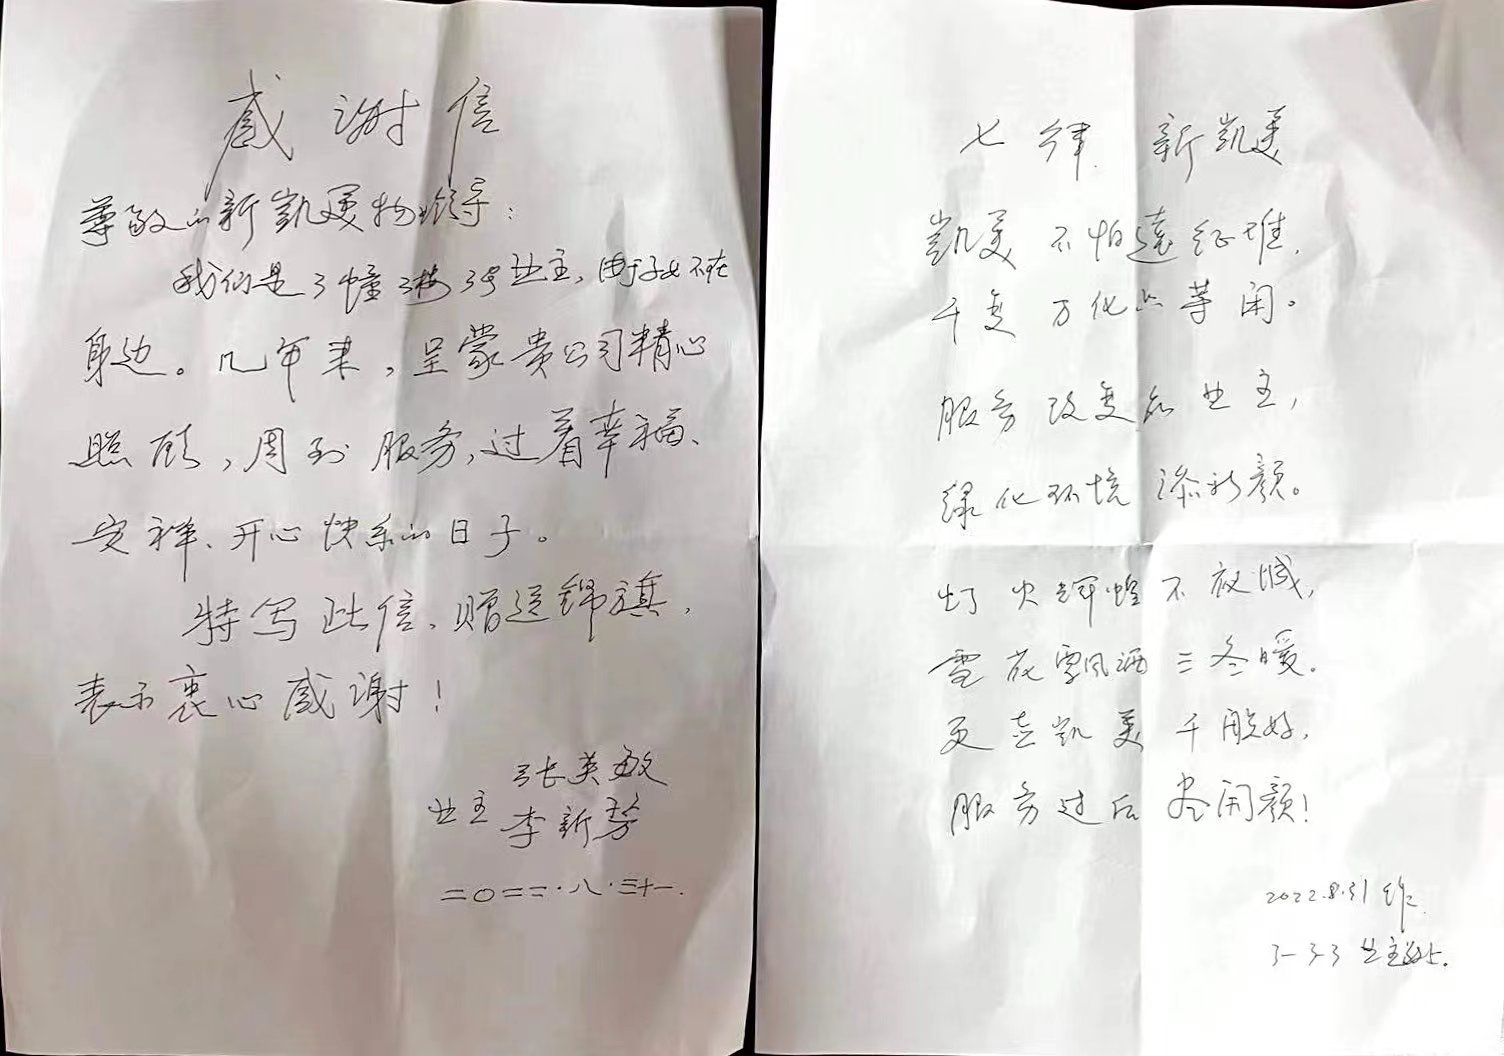 感谢信
尊敬的新凯美物业领导：
我们是3幢3楼3号业主，由于子女不在
身边。几年来，呈蒙贵公司精心
照顾，周到服务，过着幸福、
安祥、开心快乐的日子。
特写此信、赠送锦旗，
表示衷心感谢！
张英敏
业主 李新
二〇二二·八·三十一.
七律 新凯美
凯美不怕远征难，
千变万化只等闲。
服务改变为业主，
绿化环境添新颜。
灯火辉煌不夜城，
雪花飘洒三冬暖。
更喜凯美千般好，
服务过后尽开颜！
2022.8.31 作
3-3-3 业主